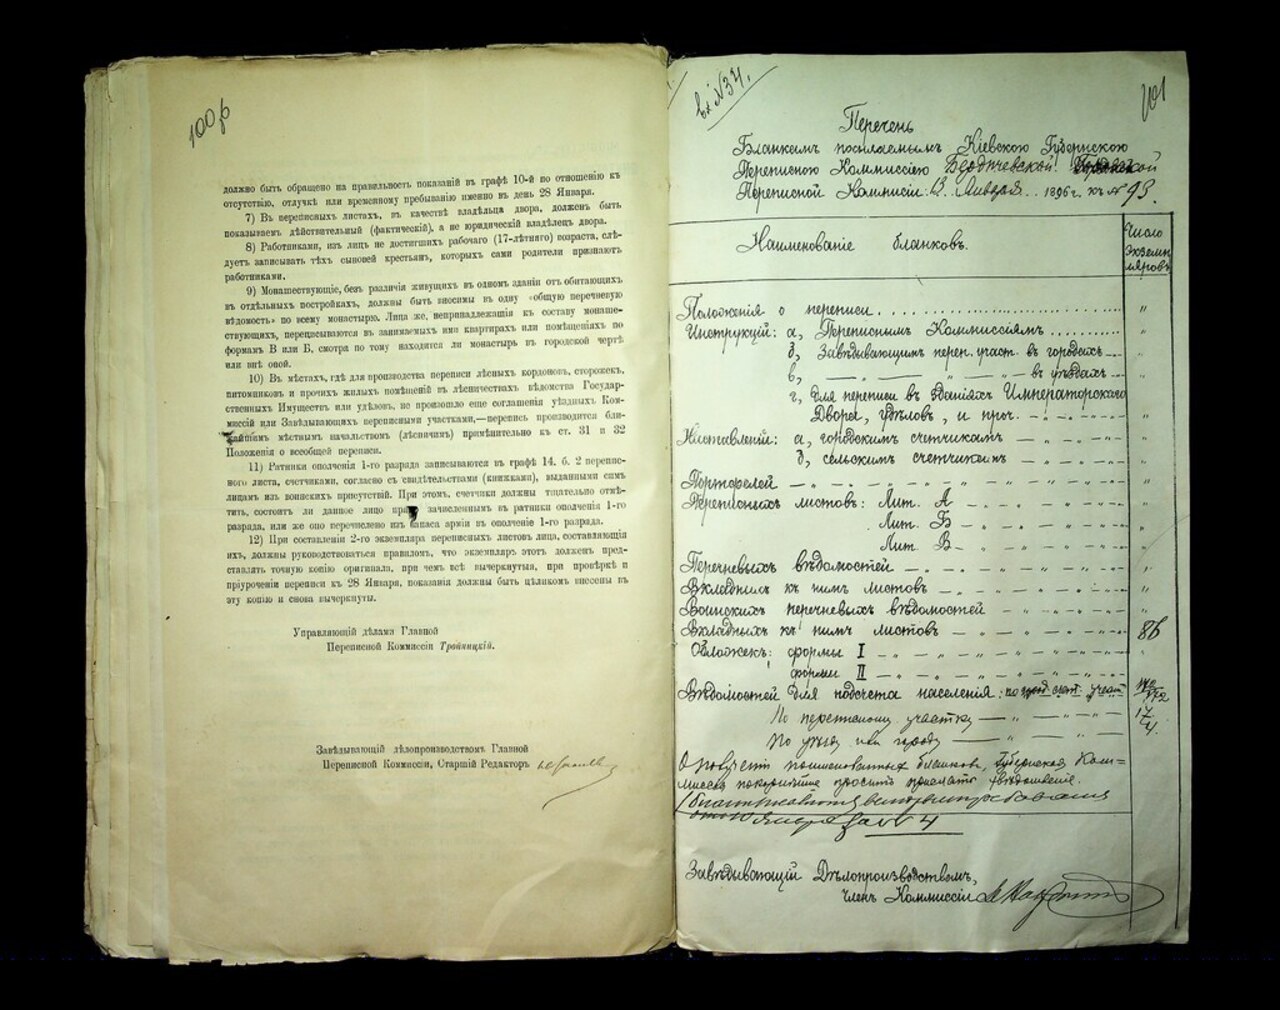 100 об
должно быть обращено на правильность показаній въ графѣ 10-й по отношенію къ
отсутствію, отлучкѣ или временному пребыванію именно въ день 28 Января.
7) Въ переписныхъ листахъ, въ качествѣ владѣльца двора, долженъ быть
показываемъ дѣйствительный (фактическій), а не юридическій владѣлецъ двора.
8) Работниками, изъ лицъ не достигшихъ рабочаго (17-лѣтняго) возраста, слѣ-
дуетъ записывать тѣхъ сыновей крестьянъ, которыхъ сами родители признаютъ
работниками.
9) Монашествующіе, безъ различія живущихъ въ одномъ зданіи отъ обитающихъ
въ отдѣльныхъ постройкахъ, должны быть вносимы въ одну «общую перечневую
вѣдомость» по всему монастырю. Лица же, непринадлежащія къ составу монаше-
ствующихъ, переписываются въ занимаемыхъ ими квартирахъ или помѣщеніяхъ по
формамъ В или Б, смотря по тому находится ли монастырь въ городской чертѣ
или внѣ оной.
10) Въ мѣстахъ, гдѣ для производства переписи лѣсныхъ кордоновъ, сторожекъ,
питомниковъ и прочихъ жилыхъ помѣщеній въ лѣсничествахъ вѣдомства Государ-
ственныхъ Имуществъ или удѣловъ, не произошло еще соглашенія уѣздныхъ Ком-
миссій или Завѣдывающихъ переписными участками,—перепись производится бли-
жайшимъ мѣстнымъ начальствомъ (лѣсничимъ) примѣнительно къ ст. 31 и 32
Положенія о всеобщей переписи.
11) Ратники ополченія 1-го разряда записываются въ графѣ 14. б. 2 переписн-
ного листа, счетчиками, согласно съ свидѣтельствами (книжками), выданными симъ
лицамъ изъ воинскихъ присутствій. При этомъ, счетчики должны тщательно отмѣ-
тить, состоитъ ли данное лицо зачисленнымъ въ ратники ополченія 1-го
разряда, или же оно перечислено изъ запаса арміи въ ополченіе 1-го разряда.
12) При составленіи 2-го экземпляра переписныхъ листовъ лица, составляющія
ихъ, должны руководствоваться правиломъ, что экземпляръ этотъ долженъ пред-
ставлять точную копію оригинала, при чемъ всѣ вычеркнутыя, при провѣркѣ и
пріуроченіи переписи къ 28 Января, показанія должны быть цѣликомъ внесены въ
эту копію и снова вычеркнуты.
Управляющій дѣлами Главной
Переписной Коммиссіи Тройницкій.
Завѣдывающій дѣлопроизводствомъ Главной
Переписной Коммиссіи, Старшій Редакторъ
вх №34.
101
Перечень
Бланкамъ посылаемымъ Кіевскою Губернскою
Переписною Коммиссіею Бердичевской
Переписной Коммиссіи. 13. Января.. 1896 г. къ № 93.
Наименованіе бланковъ.
Число
Экземп
ляровъ
Положенія о переписи
Инструкцій: а, Переписнымъ Коммиссіямъ
б, Завѣдывающимъ переп. участ. въ городахъ
в, — „ — „ — въ уѣздахъ
г, для переписи въ зданіяхъ Императорскаго
Двора, удѣловъ, и проч.
Наставленій: а, городскимъ счетчикамъ
б, сельскимъ счетчикамъ
Портфелей
Переписныхъ листовъ: Лит. А
Лит. Б
Лит. В
Перечневыхъ вѣдомостей
Вкладныхъ къ нимъ листовъ
Воинскихъ перечневыхъ вѣдомостей
Вкладныхъ къ нимъ листовъ 86
Обложекъ: формы I
формы II
Вѣдомостей для подсчета населенія: по
По переписному участку 17
По уѣзду или городу 4.
О полученіи поименованныхъ бланковъ, Губернская Ком-
миссія покорнѣйше проситъ прислать увѣдомленіе.
за № 4
Завѣдывающій Дѣлопроизводствомъ,
Членъ Коммиссіи